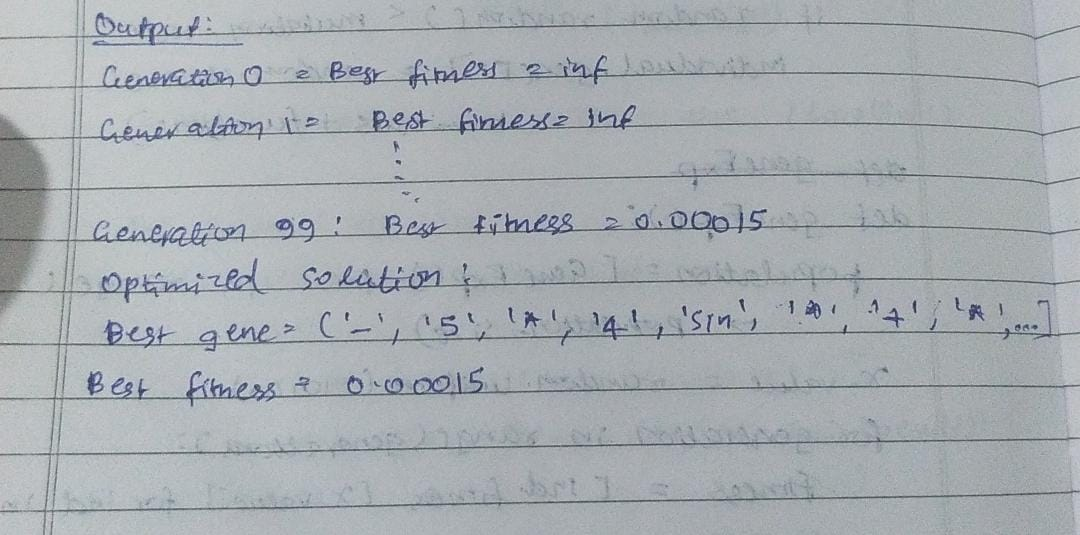 Output:
Generation 0 = Best fitness = inf
Generation 1 = Best fitness = inf
Generation 99 : Best fitness = 0.00015
Optimized solution :
Best gene = ['-', '5', '*', '4', 'sin', '*', '+', '*', ...]
Best fitness = 0.00015